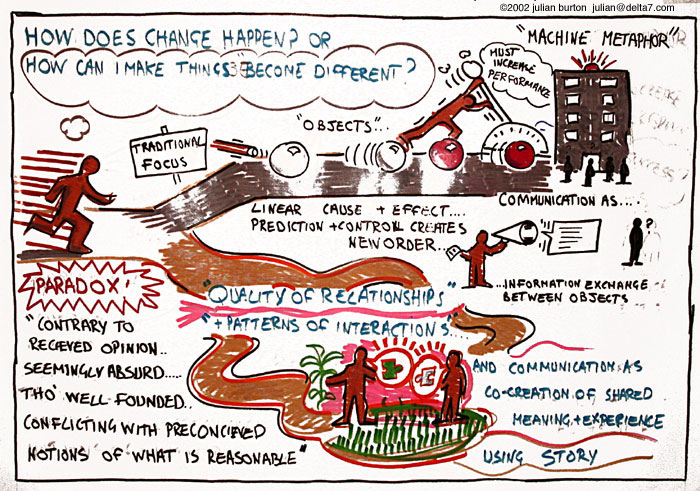 ©2002 julian burton julian@delta7.com
HOW DOES CHANGE HAPPEN? OR
HOW CAN I MAKE THINGS BECOME DIFFERENT?
"MACHINE METAPHOR"
MUST
INCREASE
PERFORMANCE
TRADITIONAL
FOCUS
"OBJECTS"...
LINEAR CAUSE + EFFECT....
PREDICTION + CONTROL CREATES
NEW ORDER...
COMMUNICATION AS....
?
...INFORMATION EXCHANGE
BETWEEN OBJECTS
PARADOX!
"CONTRARY TO
RECIEVED OPINION..
SEEMINGLY ABSURD.....
THO' WELL-FOUNDED..
CONFLICTING WITH PRECONCIEVED
NOTIONS OF WHAT IS REASONABLE"
"QUALITY OF RELATIONSHIPS"
"+ PATTERNS OF INTERACTIONS....
AND COMMUNICATION AS
CO-CREATION OF SHARED
MEANING + EXPERIENCE
USING STORY